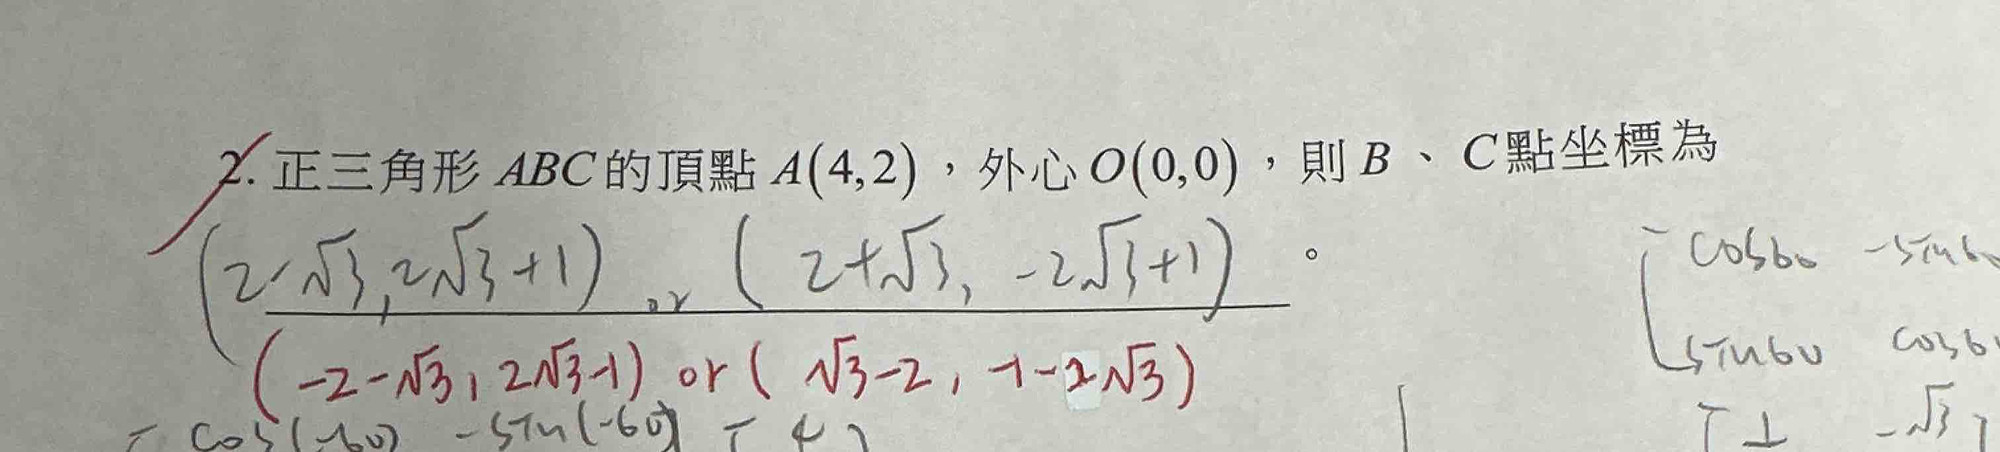 2. 正三角形 ABC 的頂點 A(4,2)，外心 O(0,0)，則 B、C 點坐標為
(2-√3, 2√3+1) or (2+√3, -2√3+1) 。
(-2-√3, 2√3-1) or (√3-2, -1-2√3)
cos60 -sin60
sin60 cos60
cos(-60) -sin(-60)
-√3